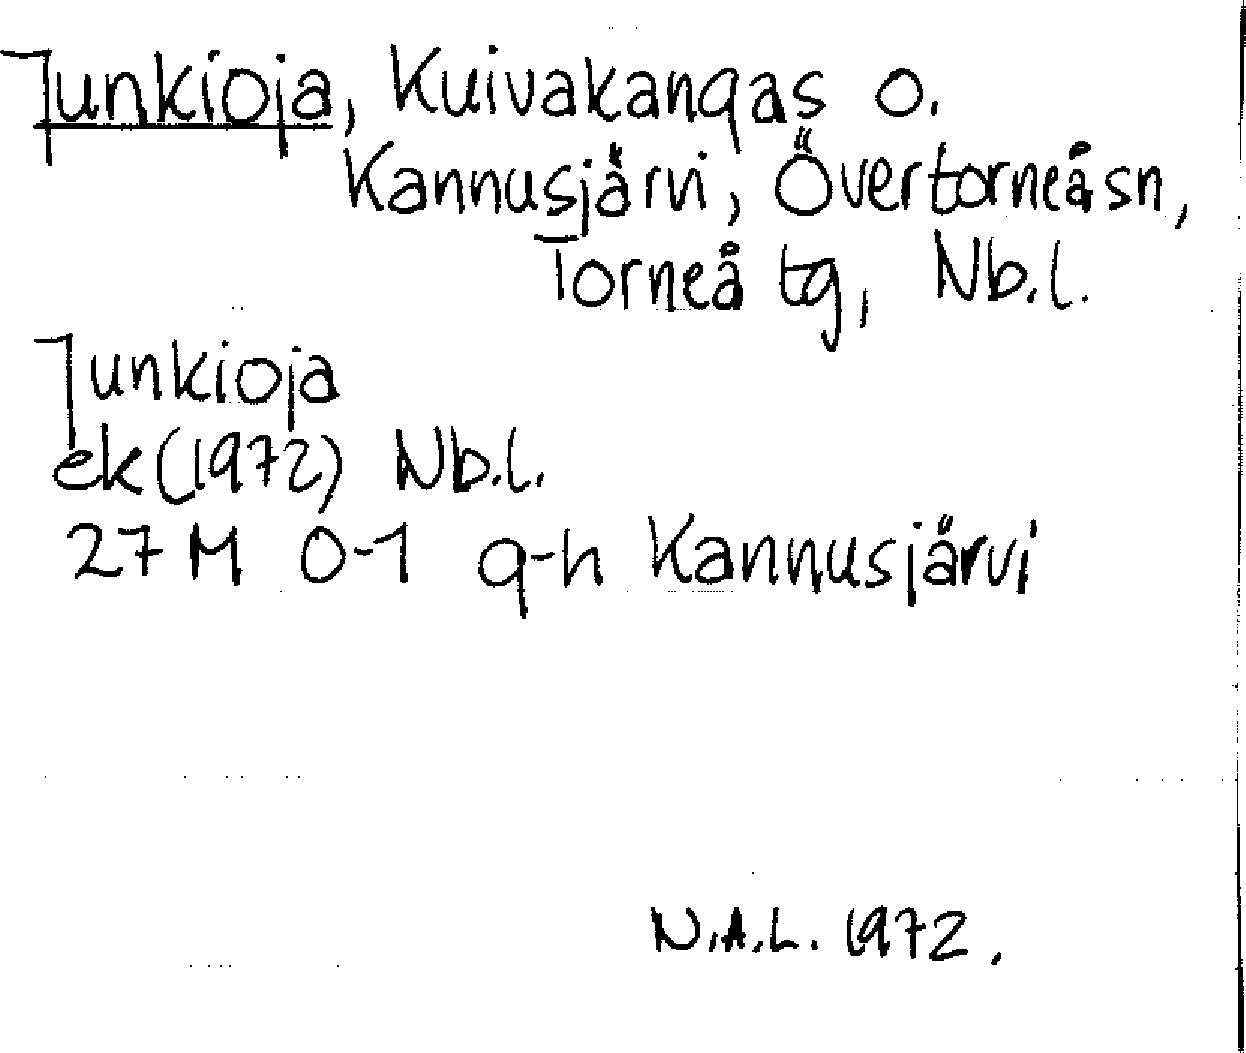 Junkioja, Kuivakangas o.
Kannusjärvi, Övertorneå sn,
Torneå tg, Nb.l.
Junkioja
ek (1972) Nb.l.
27 M 0-1 g-h Kannusjärvi
N.A.L. 1972.